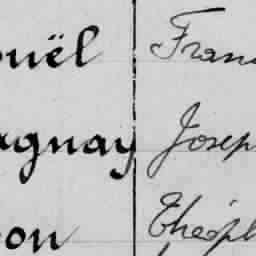 ouël Fran
agnay Josep
on Théopl